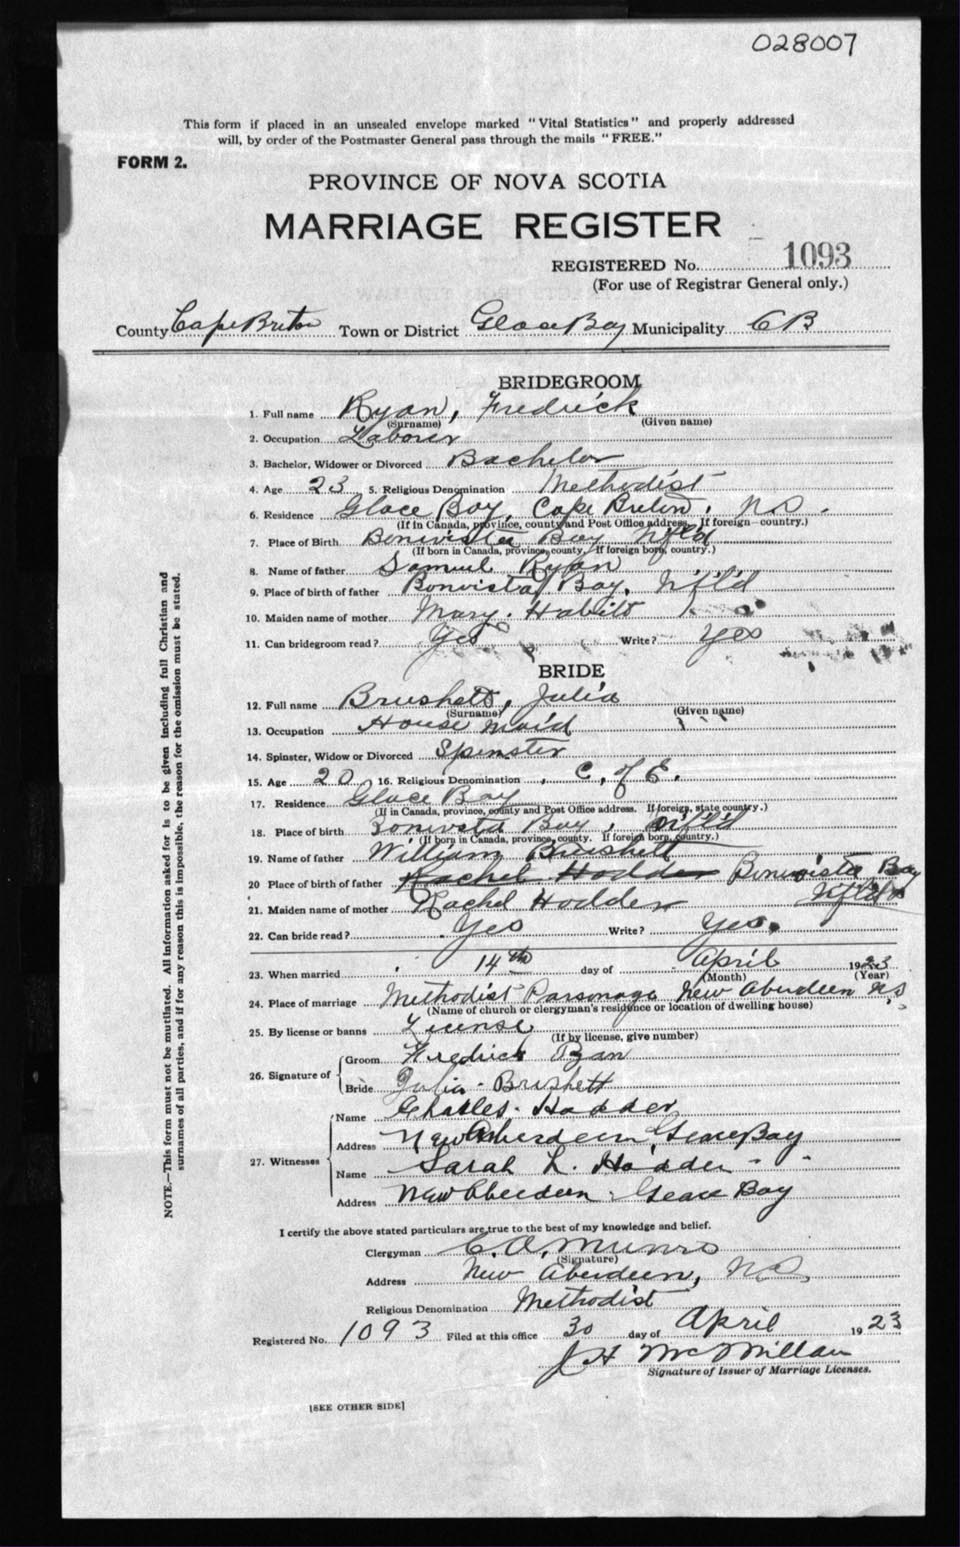 028007
This form if placed in an unsealed envelope marked "Vital Statistics" and properly addressed
will, by order of the Postmaster General pass through the mails "FREE."
FORM 2.
PROVINCE OF NOVA SCOTIA
MARRIAGE REGISTER
REGISTERED No. 1093
(For use of Registrar General only.)
County Cape Breton Town or District Glace Bay Municipality C B
BRIDEGROOM
1. Full name Ryan, Fredrick
(Surname) (Given name)
2. Occupation Laborer
3. Bachelor, Widower or Divorced Bachelor
4. Age 23 5. Religious Denomination Methodist
6. Residence Glace Bay, Cape Breton, N.S.
(If in Canada, province, county and Post Office address. If foreign country.)
7. Place of Birth Bonivista Bay Nfld
(If born in Canada, province, county. If foreign born, country.)
8. Name of father Samuel Ryan
9. Place of birth of father Bonvista Bay, Nf'l'd
10. Maiden name of mother Mary
11. Can bridegroom read? Yes Write? Yes
BRIDE
12. Full name Brushett, Julia
(Surname) (Given name)
13. Occupation House maid
14. Spinster, Widow or Divorced Spinster
15. Age 20 16. Religious Denomination C. of E.
17. Residence Glace Bay
(If in Canada, province, county and Post Office address. If foreign, state country.)
18. Place of birth Bonivista Bay, Nf'l'd
(If born in Canada, province, county. If foreign born, country.)
19. Name of father William Brushett
20 Place of birth of father Rachel Hodder Bonivista Bay
Nf'l'd
21. Maiden name of mother Rachel Hodder
22. Can bride read? Yes Write? Yes.
23. When married 14th day of April 1923
(Month) (Year)
24. Place of marriage Methodist Parsonage New Aberdeen N.S
(Name of church or clergyman's residence or location of dwelling house)
25. By license or banns License
(If by license, give number)
26. Signature of Groom Fredrick Ryan
Bride Julia Brushett
27. Witnesses Name Charles Hodder
Address New Aberdeen Glace Bay
Name Sarah L. Hodder
Address New Aberdeen Glace Bay
I certify the above stated particulars are true to the best of my knowledge and belief.
Clergyman C. A. Munro
(Signature)
Address New Aberdeen, N.S.
Religious Denomination Methodist
Registered No. 1093 Filed at this office 30 day of April 1923
J H McMillan
Signature of Issuer of Marriage Licenses.
[SEE OTHER SIDE]
NOTE.—This form must not be mutilated. All information asked for is to be given including full Christian and
surnames of all parties, and if for any reason this is impossible, the reason for the omission must be stated.